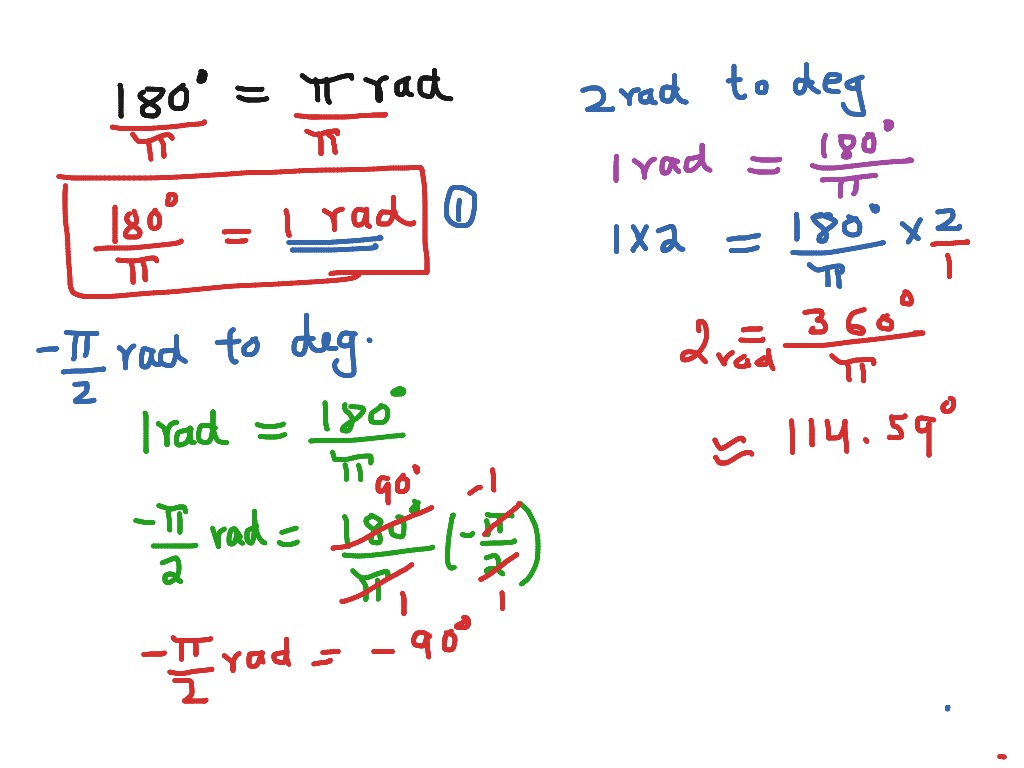 180° = π rad
π π
180°/π = 1 rad ①
-π/2 rad to deg.
1 rad = 180°/π
90° -1
-π/2 rad = 180°/π (-π/2)
1 1
-π/2 rad = -90°
2 rad to deg
1 rad = 180°/π
1 × 2 = 180°/π × 2/1
2 rad = 360°/π
≈ 114.59°